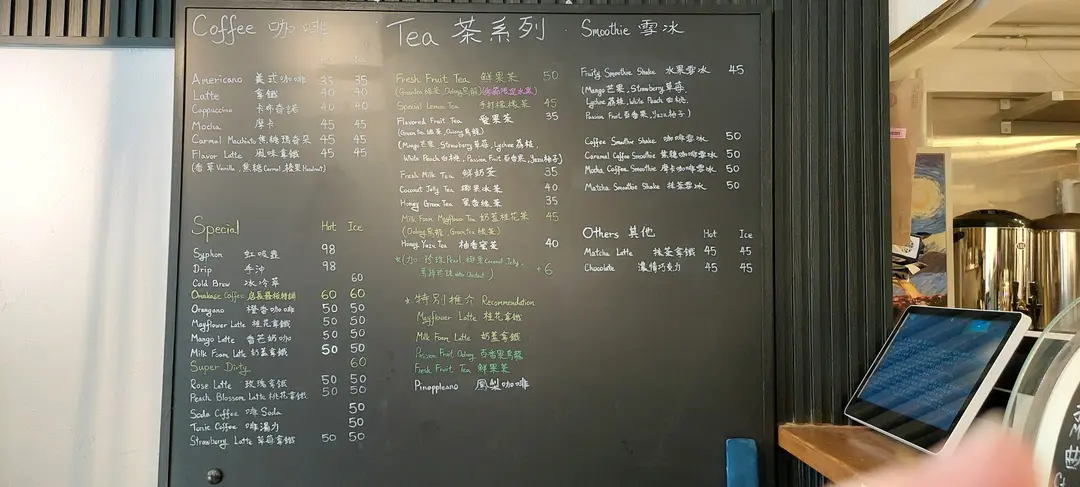 Coffee 咖啡
Americano 美式咖啡 35 35
Latte 拿鐵 40 40
Cappuccino 卡布奇諾 40 40
Mocha 摩卡 45 45
Carmal Machiato 焦糖瑪奇朵 45 45
Flavor Latte 風味拿鐵 45 45
(香草 Vanilla, 焦糖 Carmel, 榛果 Hazelnut)
Special Hot Ice
Syphon 虹吸壺 98
Drip 手沖 98
Cold Brew 冰冷萃 60
Omakase Coffee 60 60
Orangano 橙香咖啡 50 50
Mayflower Latte 桂花拿鐵 50 50
Mango Latte 香芒奶咖 50 50
Milk Foam Latte 奶蓋拿鐵 50 50
Super Dirty 60
Rose Latte 玫瑰拿鐵 50 50
Peach Blossom Latte 桃花拿鐵 50 50
Soda Coffee 啡 Soda 50
Tonic Coffee 啡湯力 50
Strawberry Latte 草莓拿鐵 50 50
Tea 茶系列
Fresh Fruit Tea 鮮果茶 50
(Greentea 綠茶, Oolong 烏龍)
Special Lemon Tea 手打檸檬茶 45
Flavored Fruit Tea 蜜果茶 35
(Green Tea 綠茶, Oolong 烏龍)
(Mango 芒果, Strawberry 草莓, Lychee 荔枝,
White Peach 白桃, Passion Fruit 百香果, Yuzu 柚子)
Fresh Milk Tea 鮮奶茶 35
Coconut Jelly Tea 椰果冰茶 40
Honey Green Tea 蜜香綠茶 35
Milk Foam Mayflower Tea 奶蓋桂花茶 45
(Oolong 烏龍, Green Tea 綠茶)
Honey Yuzu Tea 柚香蜜茶 40
*(加 珍珠 Pearl 椰果 Coconut Jelly,
Water Chestnut) +6
* 特別推介 Recommendation
Mayflower Latte 桂花拿鐵
Milk Foam Latte 奶蓋拿鐵
Passion Fruit Oolong 百香果烏龍
Fresh Fruit Tea 鮮果茶
Pineappleano 鳳梨咖啡
Smoothie 雪冰
Fruity Smoothie Shake 水果雪冰 45
(Mango 芒果, Strawberry 草莓,
Lychee 荔枝, White Peach 白桃,
Passion Fruit 百香果, Yuzu 柚子)
Coffee Smoothie Shake 咖啡雪冰 50
Caramel Coffee Smoothie 焦糖咖啡雪冰 50
Mocha Coffee Smoothie 摩卡咖啡雪冰 50
Matcha Smoothie Shake 抹茶雪冰 50
Others 其他 Hot Ice
Matcha Latte 抹茶拿鐵 45 45
Chocolate 濃情巧克力 45 45